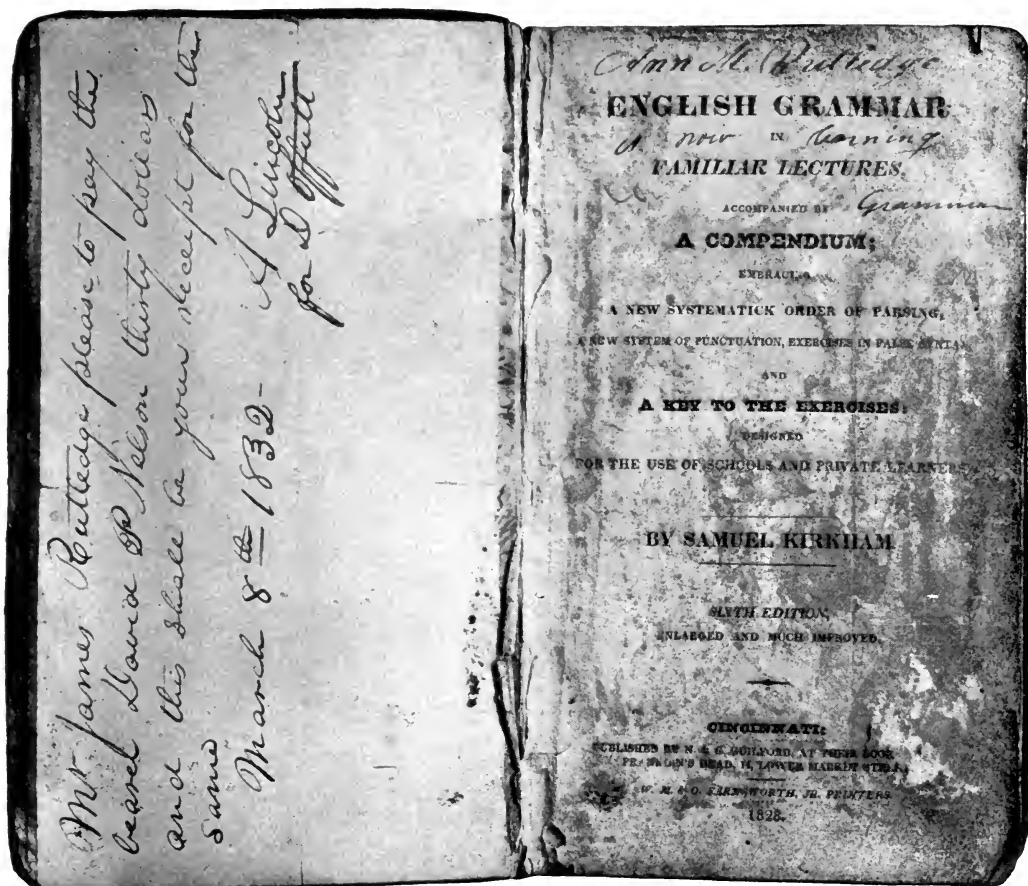 Mr James Rutledge please to pay the
bearer David P Nelson thirty dollars
and this shall be your receipt for the
same
March 8th 1832-
A Lincoln
for D Offutt
Ann M. Rutledge
ENGLISH GRAMMAR
is now IN learning
FAMILIAR LECTURES,
ACCOMPANIED BY Grammar
A COMPENDIUM;
EMBRACING
A NEW SYSTEMATICK ORDER OF PARSING,
A NEW SYSTEM OF PUNCTUATION, EXERCISES IN FALSE SYNTAX,
AND
A KEY TO THE EXERCISES:
DESIGNED
FOR THE USE OF SCHOOLS AND PRIVATE LEARNERS
BY SAMUEL KIRKHAM
SIXTH EDITION,
ENLARGED AND MUCH IMPROVED.
CINCINNATI:
PUBLISHED BY N. & G. GUILFORD, AT THEIR BOOK
FRANKLIN'S HEAD, 14, LOWER MARKET STREET
W. M. & O. FARNSWORTH, JR. PRINTERS
1828.